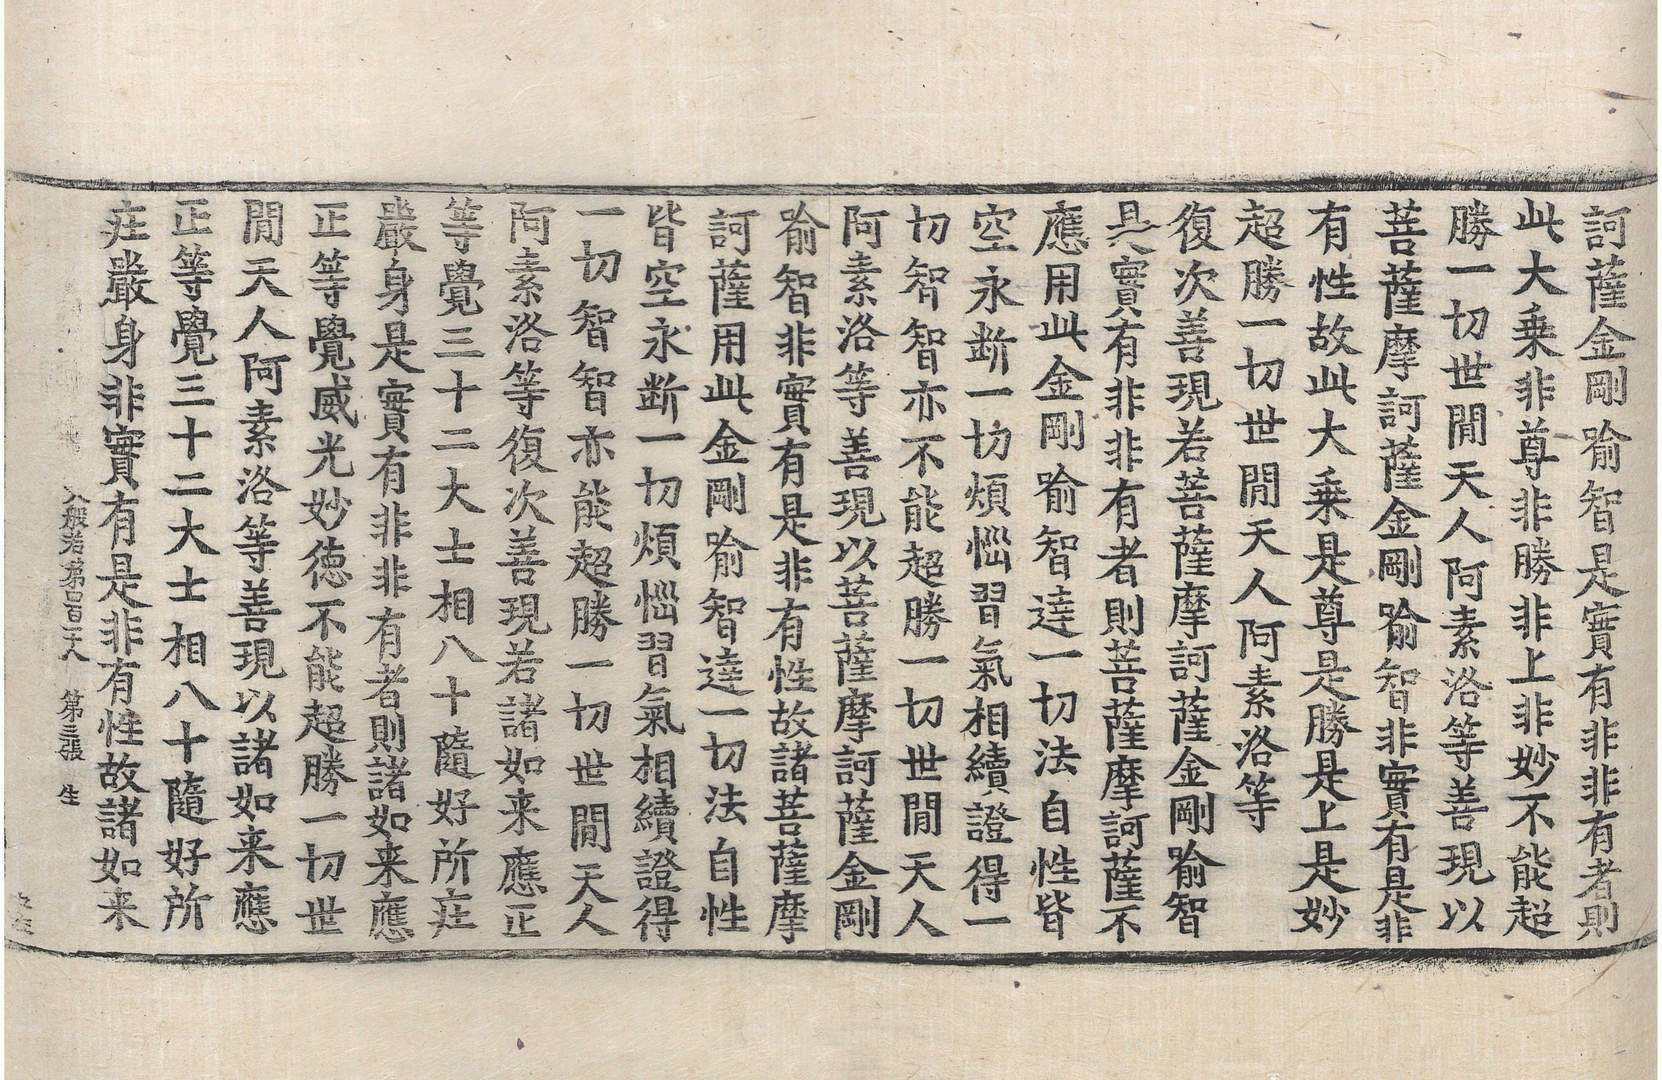 訶薩金剛喻智是實有非非有者則
此大乗非尊非勝非上非妙不能超
勝一切世間天人阿素洛等善現以
菩薩摩訶薩金剛喻智非實有是非
有性故此大乗是尊是勝是上是妙
超勝一切世間天人阿素洛等
復次善現若菩薩摩訶薩金剛喻智
是實有非非有者則菩薩摩訶薩不
應用此金剛喻智達一切法自性皆
空永断一切煩惱習氣相續證得一
切智智亦不能超勝一切世間天人
阿素洛等善現以菩薩摩訶薩金剛
喻智非實有是非有性故諸菩薩摩
訶薩用此金剛喻智達一切法自性
皆空永断一切煩惱習氣相續證得
一切智智亦能超勝一切世間天人
阿素洛等復次善現若諸如来應正
等覺三十二大士相八十隨好所莊
嚴身是實有非非有者則諸如来應
正等覺威光妙徳不能超勝一切世
間天人阿素洛等善現以諸如来應
正等覺三十二大士相八十隨好所
莊嚴身非實有是非有性故諸如来
大般若第四百二十八 第三張 生